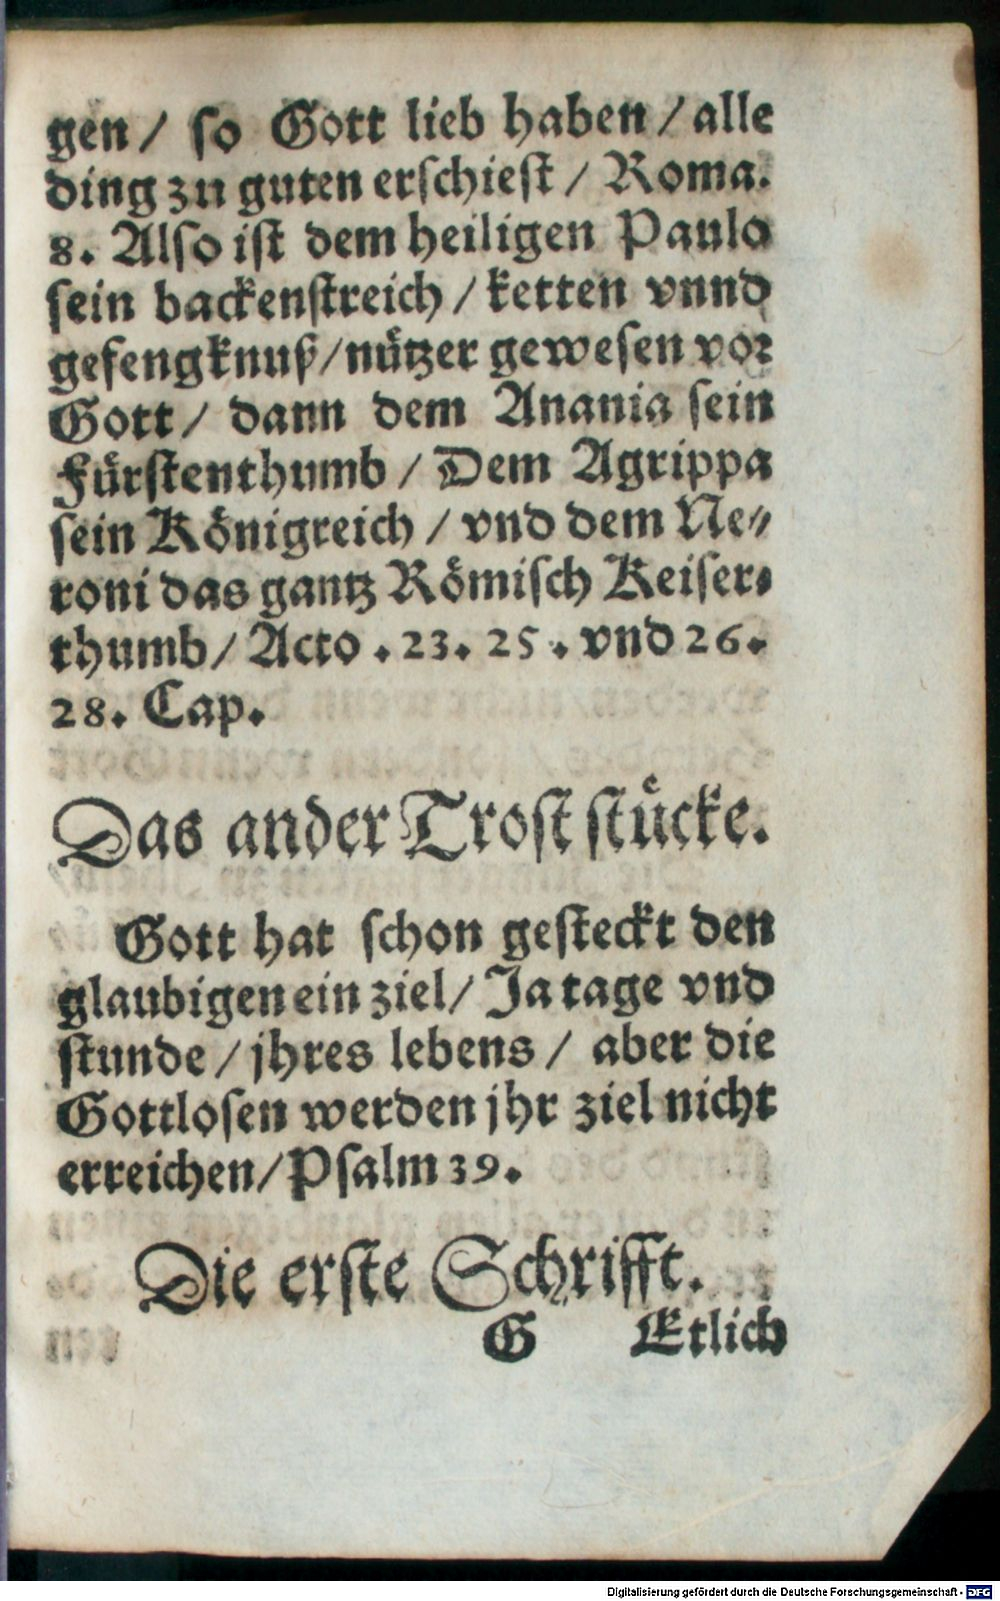 gen/ so Gott lieb haben/ alle
ding zu guten erschiest/ Roma.
8. Also ist dem heiligen Paulo
sein backenstreich/ ketten vnnd
gefengknuß/ nützer gewesen vor
Gott/ dann dem Anania sein
Fürstenthumb/ Dem Agrippa
sein Königreich/ vnd dem Ne⸗
roni das gantz Römisch Keiser⸗
thumb/ Acto. 23. 25. vnd 26.
28. Cap.
Das ander Trost stücke.
Gott hat schon gesteckt den
glaubigen ein ziel/ Ja tage vnd
stunde/ jhres lebens/ aber die
Gottlosen werden jhr ziel nicht
erreichen/ Psalm 39.
Die erste Schrifft.
G Etlich
Digitalisierung gefördert durch die Deutsche Forschungsgemeinschaft - DFG